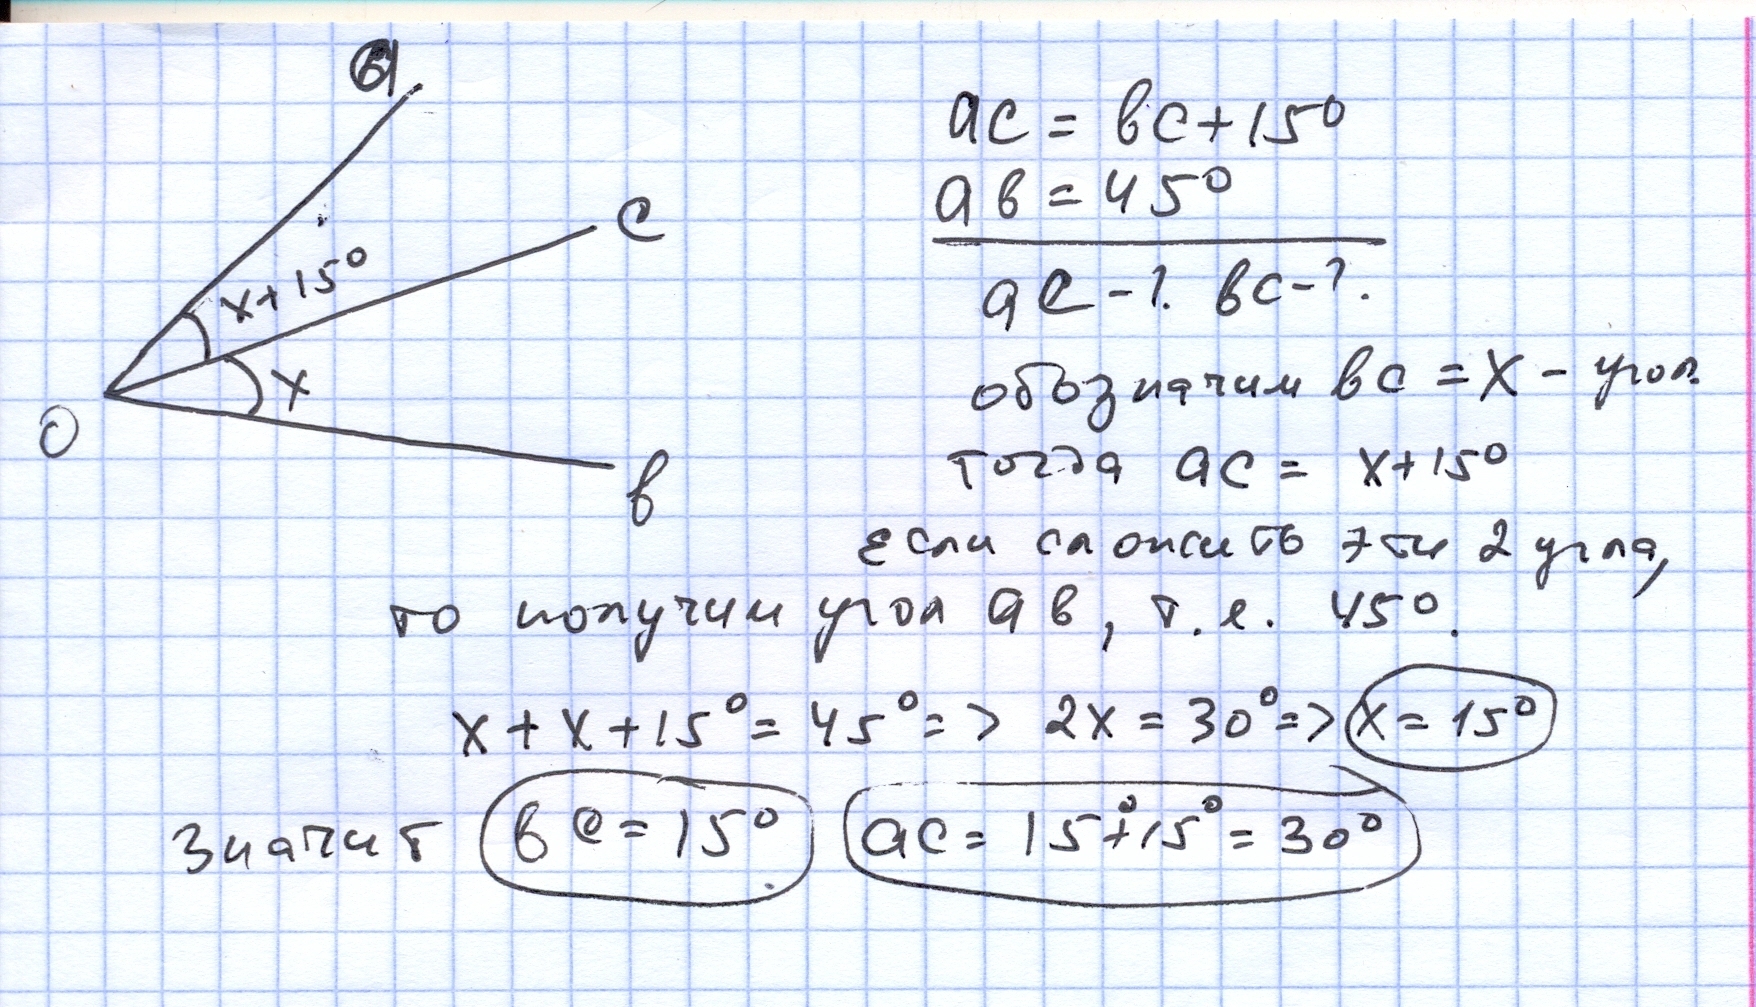 a
c
x+15°
x
O
b
ac = bc+15°
ab = 45°
ac-?. bc-?.
обозначим bc = x - угол
тогда ac = x+15°
если сложить эти 2 угла,
то получим угол ab, т.е. 45°.
x+x+15°=45°=> 2x=30°=> x=15°
значит bc=15° ac=15°+15°=30°